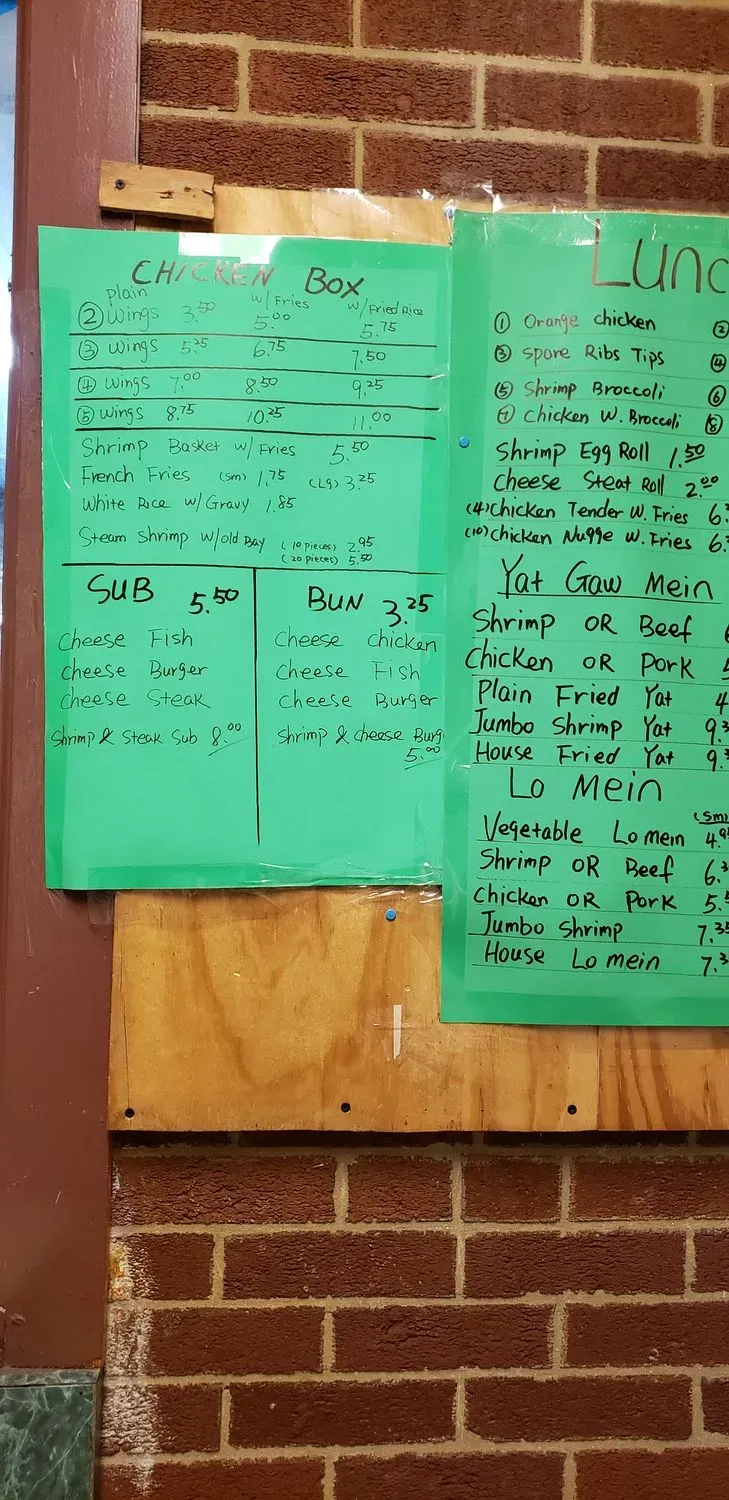 CHICKEN BOX
plain w/Fries w/Fried Rice
② Wings 3.50 5.00 5.75
③ Wings 5.25 6.75 7.50
④ Wings 7.00 8.50 9.25
⑤ Wings 8.75 10.25 11.00
Shrimp Basket w/Fries 5.50
French Fries (Sm) 1.75 (Lg) 3.25
White Rice w/Gravy 1.85
Steam Shrimp w/old Bay (10 pieces) 2.95
(20 pieces) 5.50
SUB 5.50
Cheese Fish
Cheese Burger
Cheese Steak
Shrimp & Steak Sub 8.00
BUN 3.25
Cheese chicken
Cheese Fish
Cheese Burger
Shrimp & cheese Burg
5.00
Lunc
① Orange chicken ②
③ Spare Ribs Tips ④
⑤ Shrimp Broccoli ⑥
⑦ Chicken W. Broccoli ⑧
Shrimp Egg Roll 1.50
Cheese Steat Roll 2.00
(4) Chicken Tender W. Fries 6.
(10) Chicken Nugge W. Fries 6.
Yat Gaw Mein
Shrimp OR Beef
Chicken OR Pork
Plain Fried Yat 4
Jumbo Shrimp Yat 9.3
House Fried Yat 9.3
Lo Mein
(Sm)
Vegetable Lo mein 4.9
Shrimp OR Beef 6.3
Chicken OR Pork 5.
Jumbo Shrimp 7.35
House Lo mein 7.3